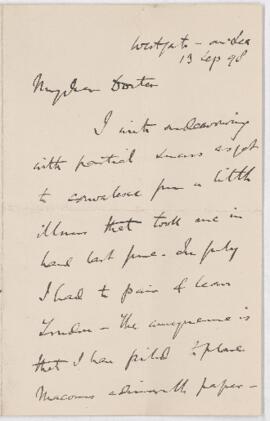 Westgate-on-Sea
13 Sep 98
My dear Doctor
I with endeavouring
with partial success as yet
to convalesce from a little
illness that took me in
hand last June. In July
I had to leave
London - The consequence is
that I have failed to place
paper -